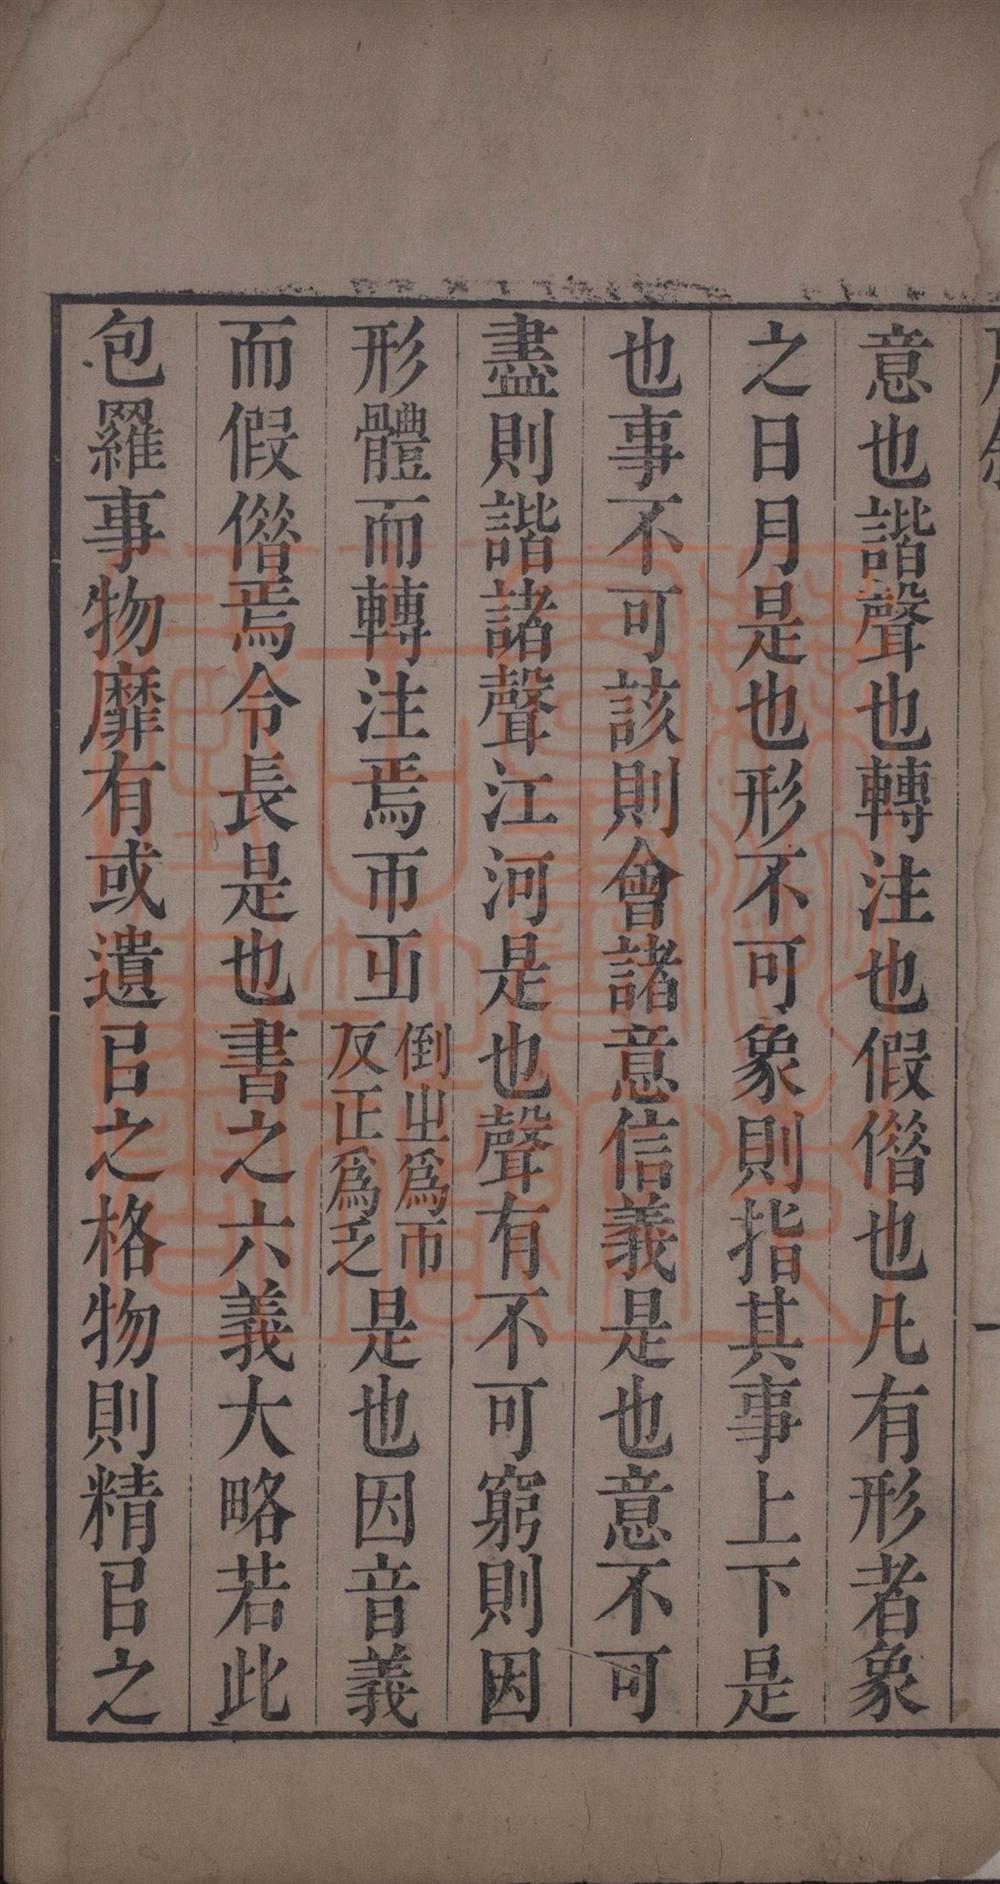 意也諧聲也轉注也假偺也凡有形者象
之日月是也形不可象則指其事上下是
也事不可該則會諸意信義是也意不可
盡則諧諸聲江河是也聲有不可窮則因
形體而轉注焉帀𤴓倒㞢為帀反正為乏是也因音義
而假偺焉令長是也書之六義大略若此
包羅事物靡有或遺㠯之格物則精㠯之